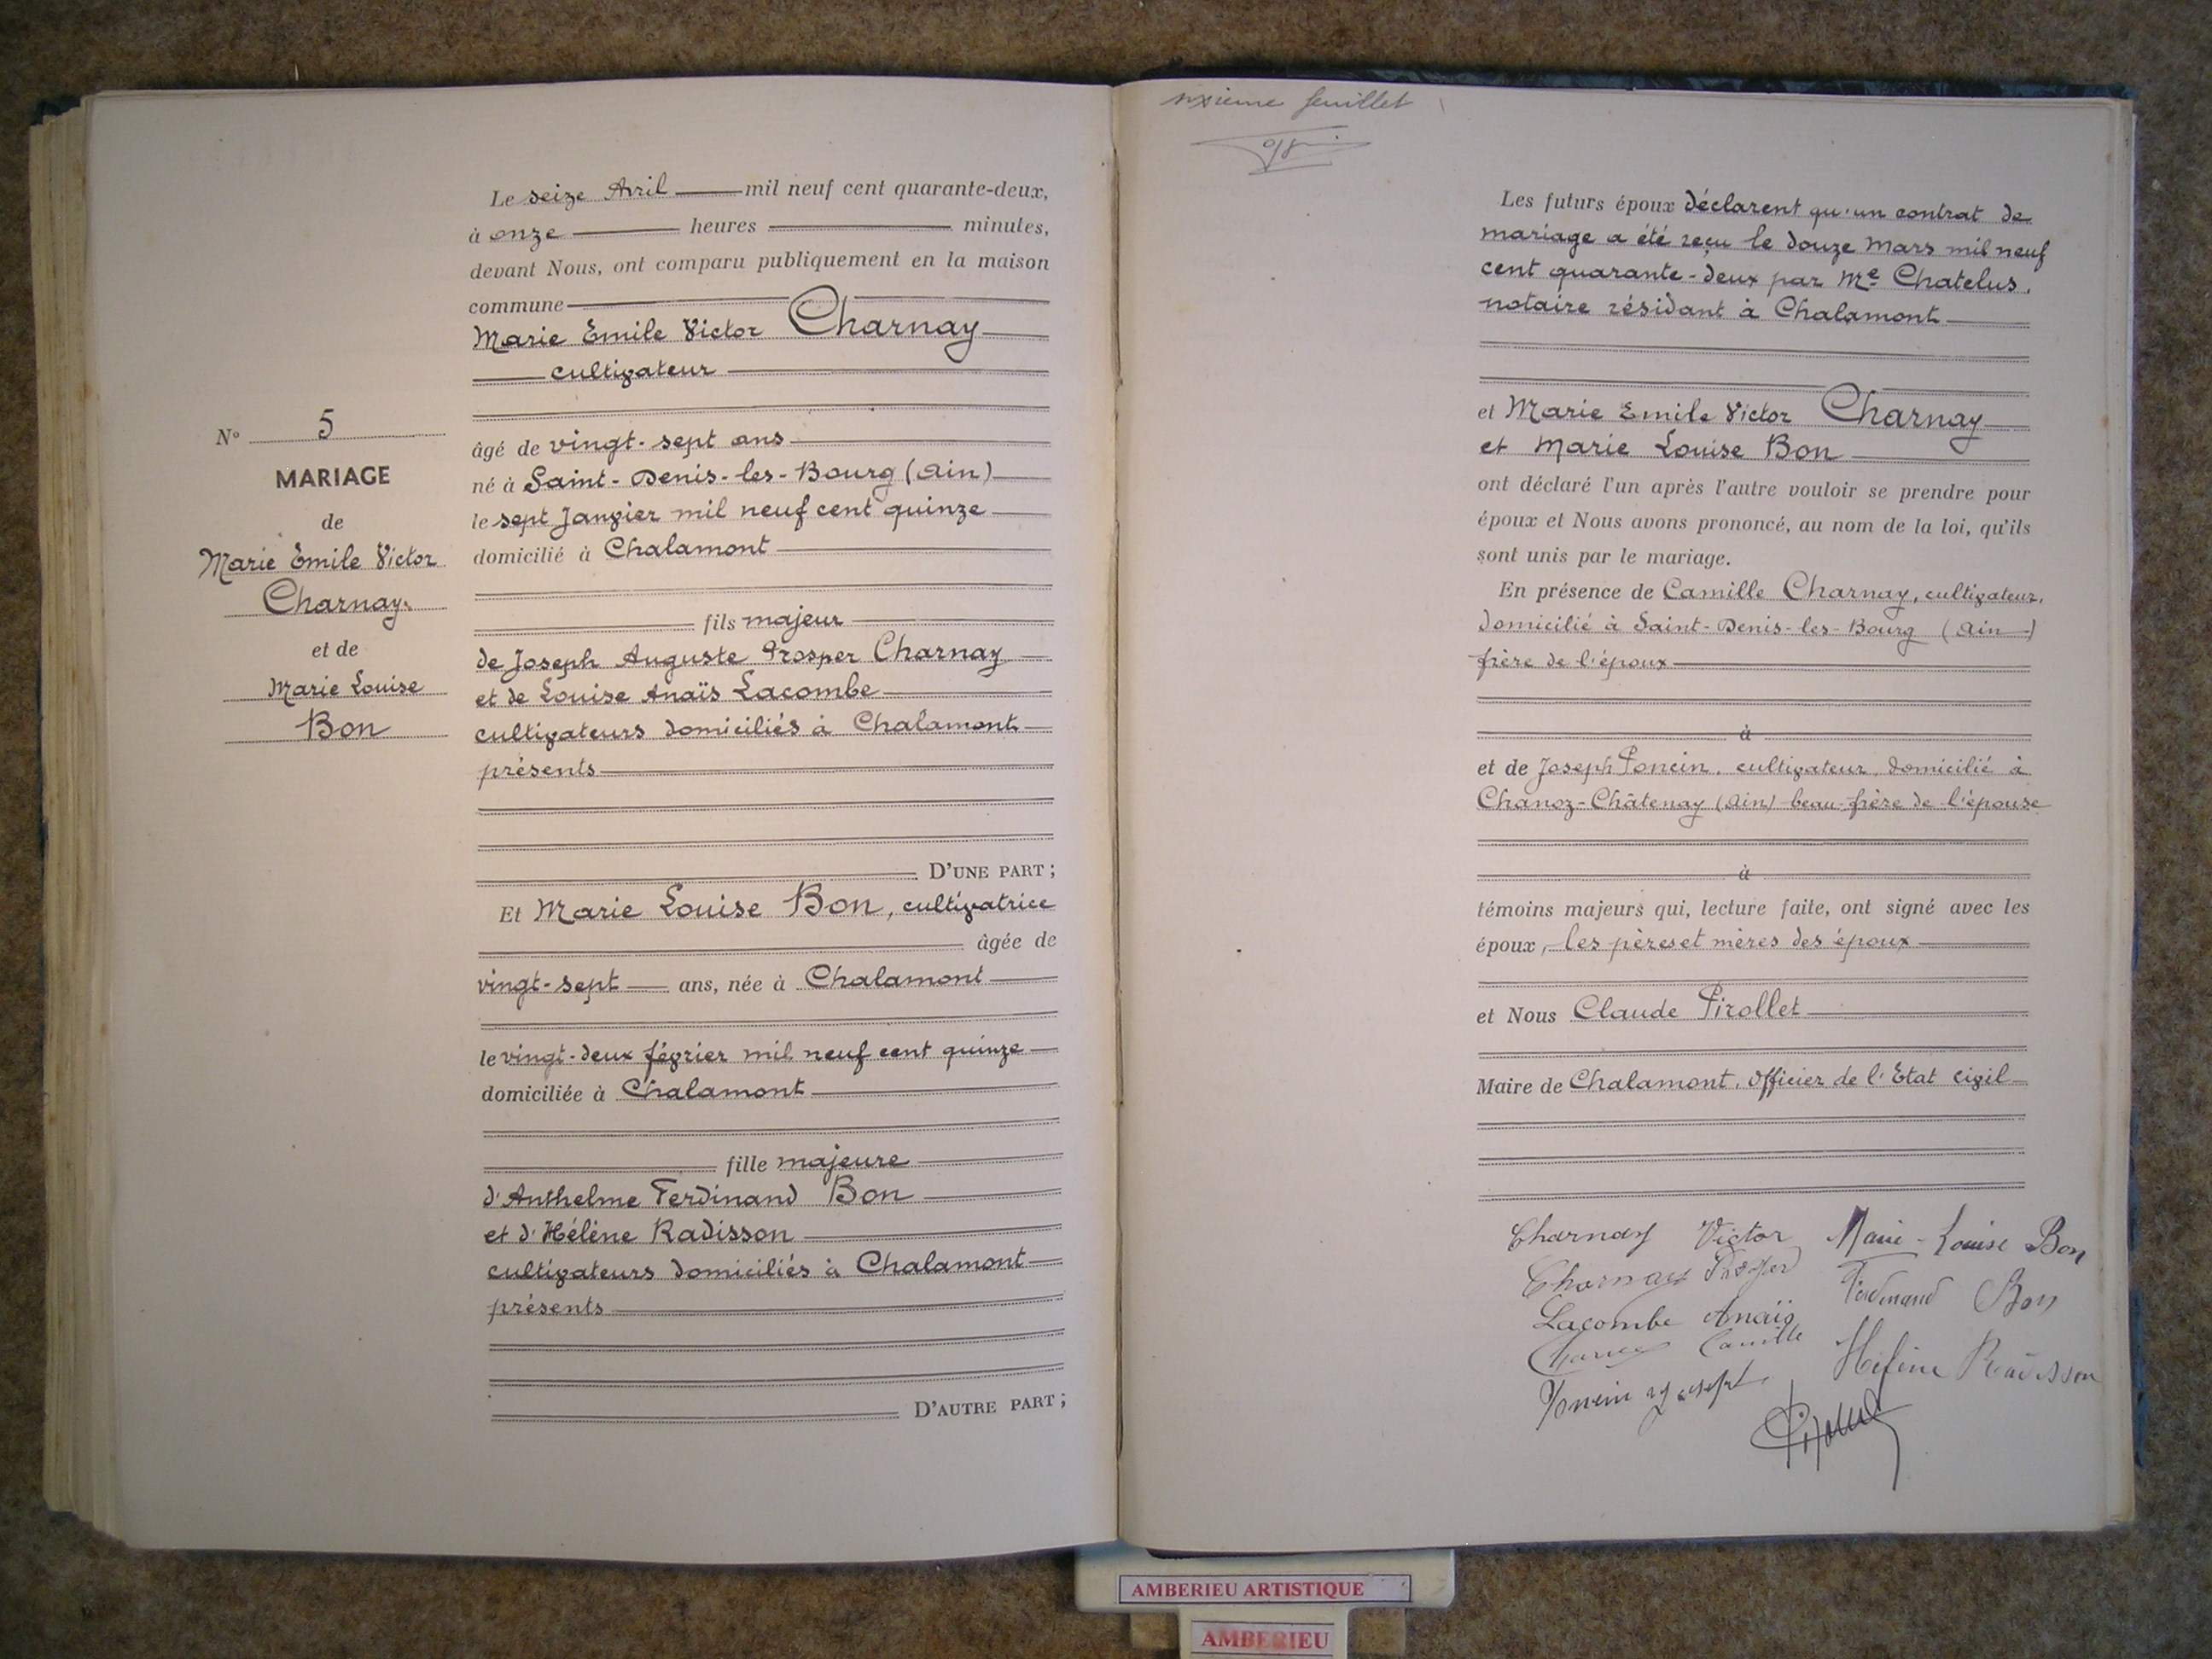 Le seize Avril mil neuf cent quarante-deux,
à onze heures minutes,
devant Nous, ont comparu publiquement en la maison
commune
Marie Emile Victor Charnay
cultivateur
N° 5
MARIAGE
de
Marie Emile Victor
Charnay
et de
Marie Louise
Bon
âgé de vingt-sept ans
né à Saint-Denis-les-Bourg (Ain)
le sept Janvier mil neuf cent quinze
domicilié à Chalamont
fils majeur
de Joseph Auguste Prosper Charnay
et de Louise Anaïs Lacombe
cultivateurs domiciliés à Chalamont
présents
D'UNE PART ;
Et Marie Louise Bon, cultivatrice
âgée de
vingt-sept ans, née à Chalamont
le vingt-deux février mil neuf cent quinze
domiciliée à Chalamont
fille majeure
d'Anthelme Ferdinand Bon
et d'Hélène Radisson
cultivateurs domiciliés à Chalamont
présents
D'AUTRE PART ;
sixième feuillet
Les futurs époux déclarent qu'un contrat de
mariage a été reçu le douze Mars mil neuf
cent quarante-deux par Me Chatelus,
notaire résidant à Chalamont
et Marie Emile Victor Charnay
et Marie Louise Bon
ont déclaré l'un après l'autre vouloir se prendre pour
époux et Nous avons prononcé, au nom de la loi, qu'ils
sont unis par le mariage.
En présence de Camille Charnay, cultivateur,
domicilié à Saint-Denis-les-Bourg (Ain)
frère de l'époux
à
et de Joseph Poncin, cultivateur, domicilié à
Chanoz-Châtenay (Ain) beau-frère de l'épouse
à
témoins majeurs qui, lecture faite, ont signé avec les
époux, les pères et mères des époux
et Nous Claude Pirollet
Maire de Chalamont, Officier de l'Etat civil
Charnay Victor Marie-Louise Bon
Charnay Prosper Ferdinand Bon
Lacombe Anaïs
Charnay Camille Hélène Radisson
Poncin Joseph
Pirollet
AMBERIEU ARTISTIQUE
AMBERIEU